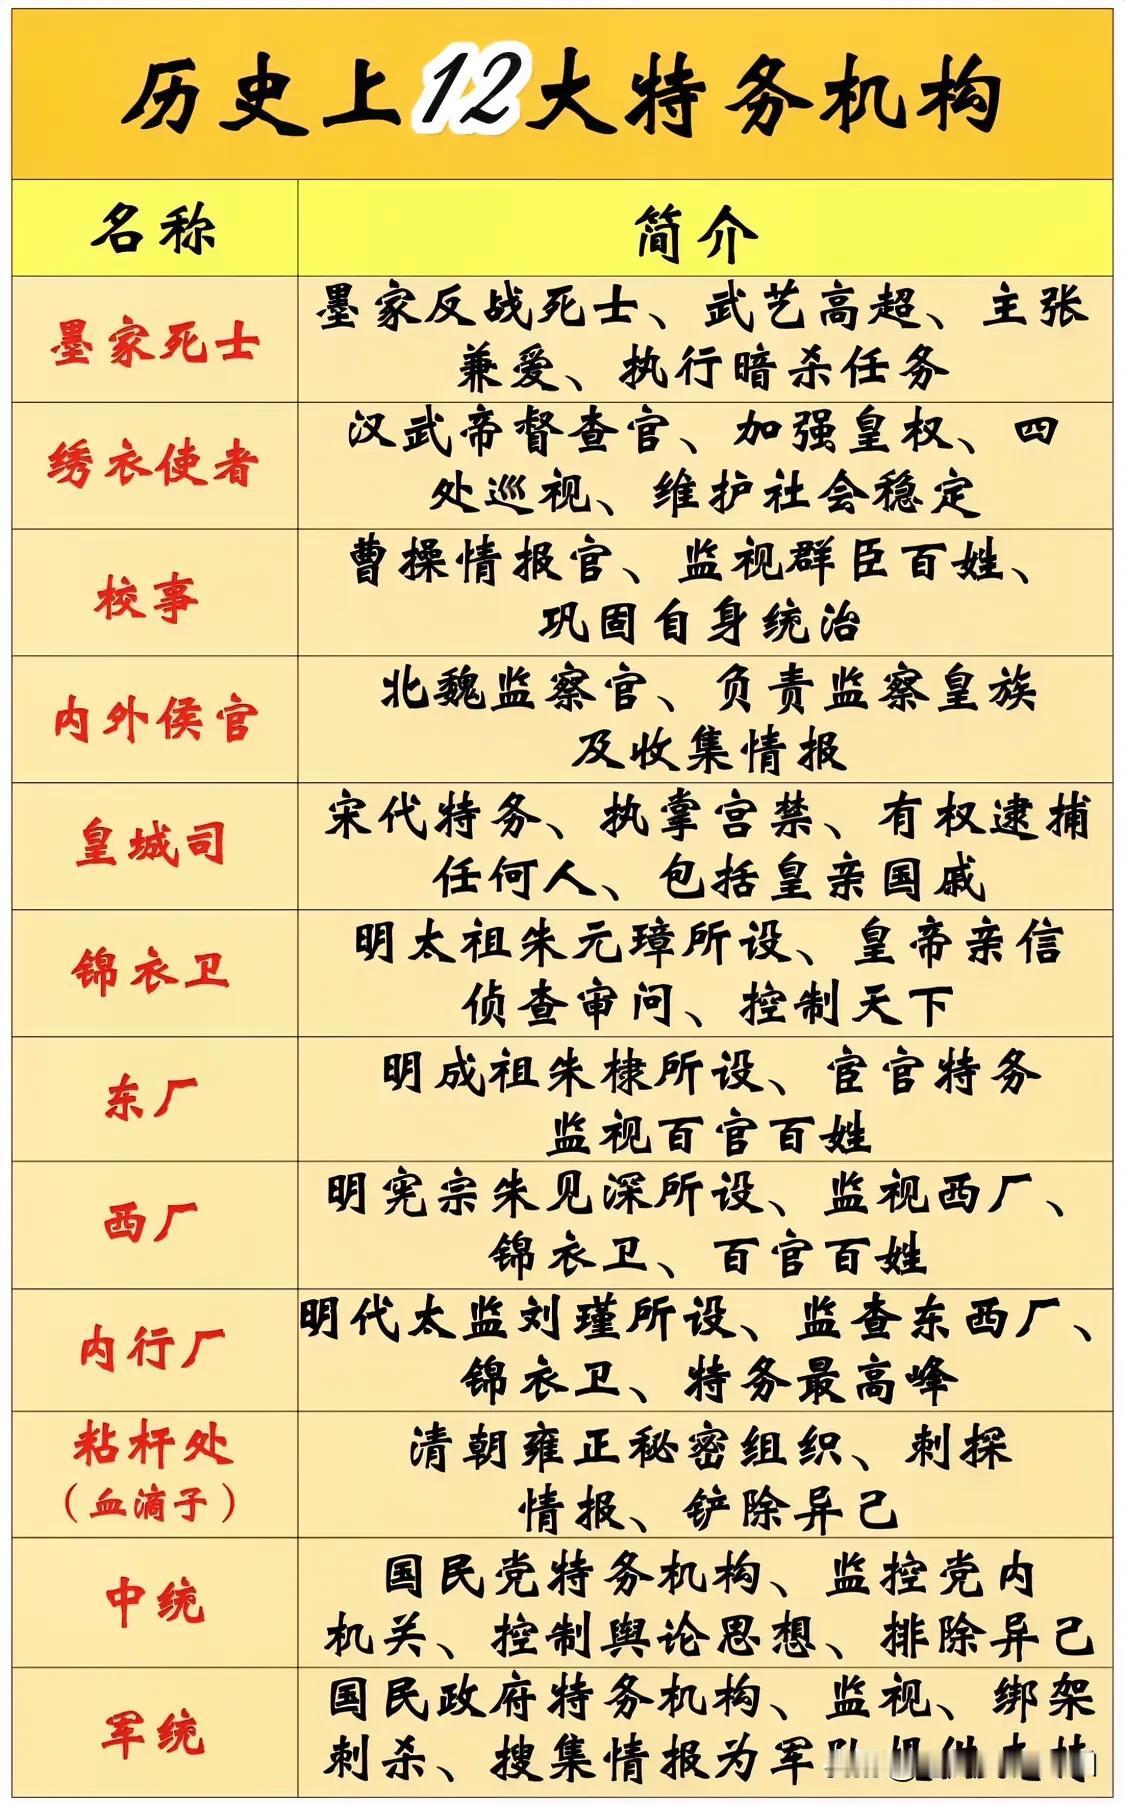 历史上12大特务机构
名称
简介
墨家死士
墨家反战死士、武艺高超、主张
兼爱、执行暗杀任务
绣衣使者
汉武帝督查官、加强皇权、四
处巡视、维护社会稳定
校事
曹操情报官、监视群臣百姓、
巩固自身统治
内外侯官
北魏监察官、负责监察皇族
及收集情报
皇城司
宋代特务、执掌宫禁、有权逮捕
任何人、包括皇亲国戚
锦衣卫
明太祖朱元璋所设、皇帝亲信
侦查审问、控制天下
东厂
明成祖朱棣所设、宦官特务
监视百官百姓
西厂
明宪宗朱见深所设、监视西厂、
锦衣卫、百官百姓
内行厂
明代太监刘瑾所设、监查东西厂、
锦衣卫、特务最高峰
粘杆处
（血滴子）
清朝雍正秘密组织、刺探
情报、铲除异己
中统
国民党特务机构、监控党内
机关、控制舆论思想、排除异己
军统
国民政府特务机构、监视、绑架
刺杀、搜集情报为军